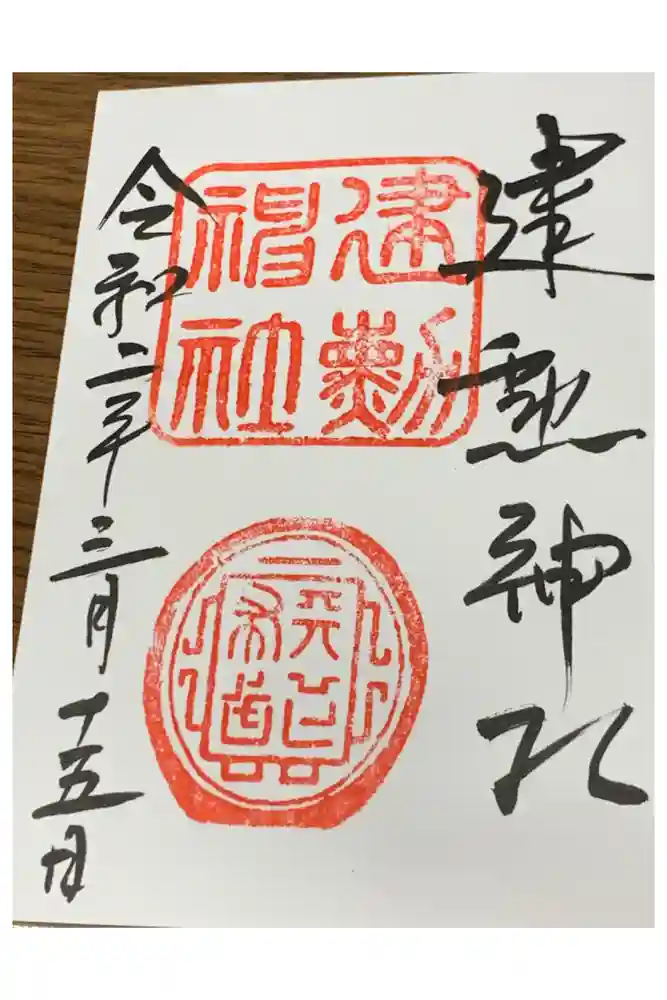 建勲神社
建勲
神社
令和二年三月十五日